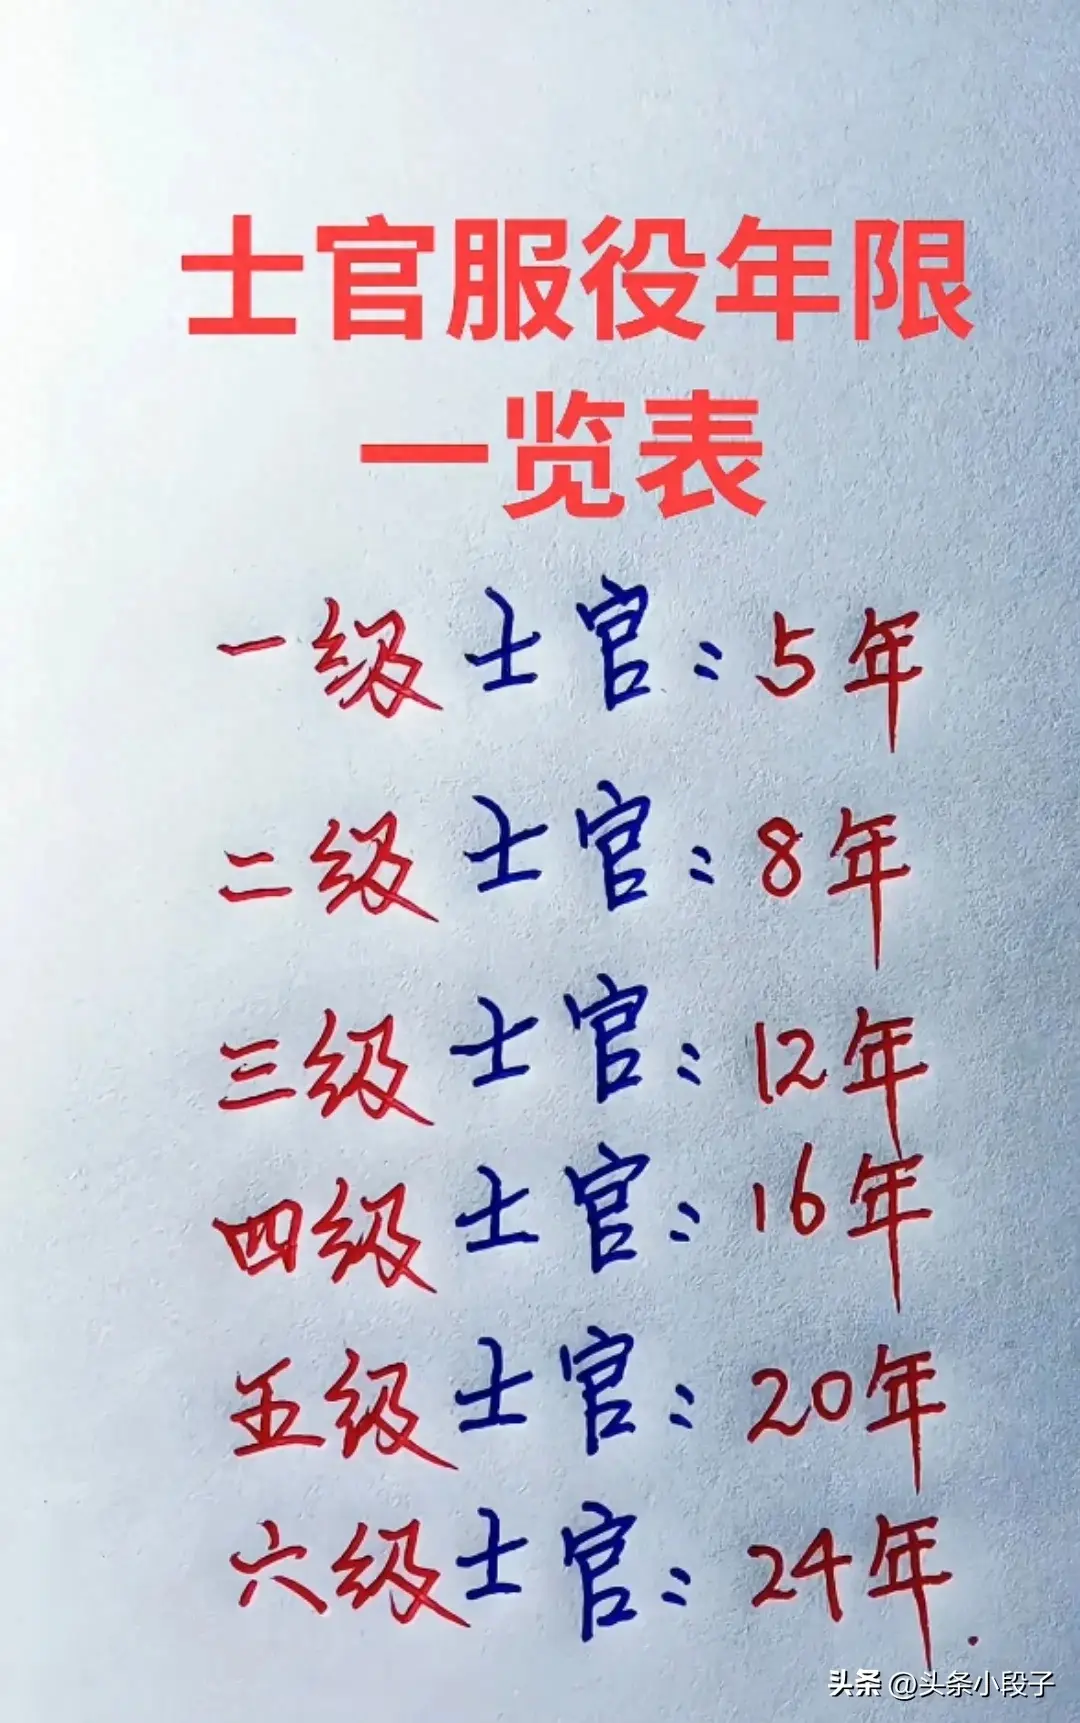 士官服役年限
一览表
一级士官：5年
二级士官：8年
三级士官：12年
四级士官：16年
五级士官：20年
六级士官：24年.
头条 @头条小段子